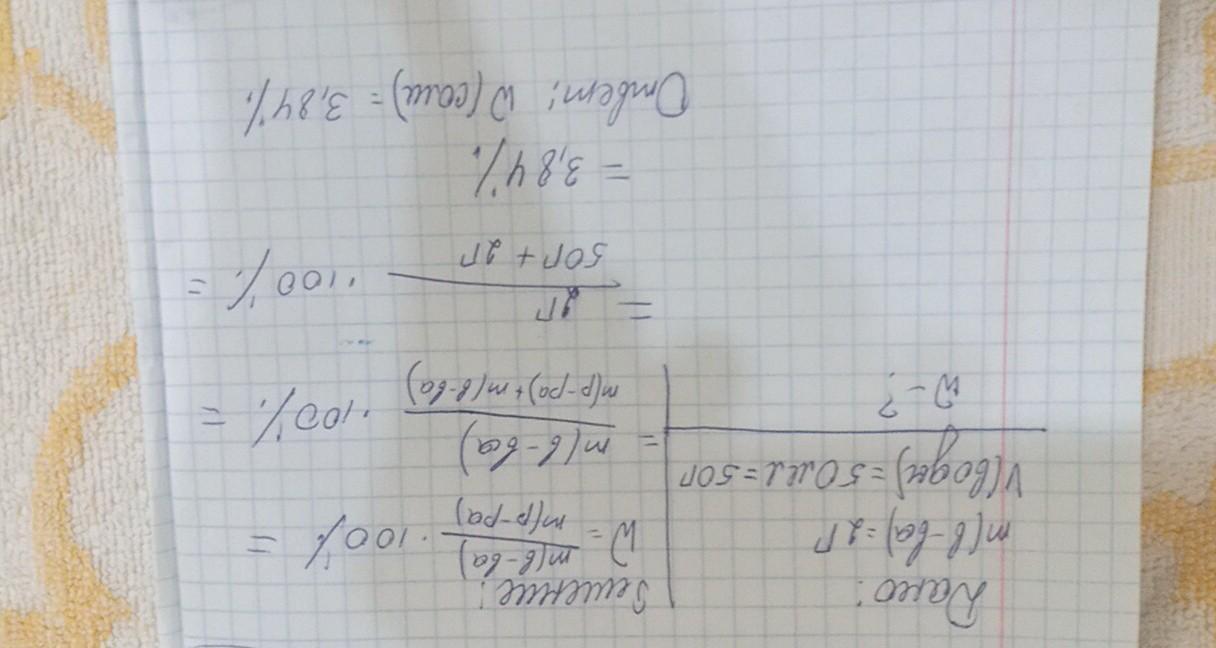 Дано:
m(в-ва)=2г
V(воды)=50мл=50г
W-?
Решение:
W = m(в-ва) / m(р-ра) · 100% =
= m(в-ва) / m(р-ра)+m(в-ва) · 100% =
= 2г / 50г + 2г · 100% =
= 3,84%
Ответ: W(соли) = 3,84%